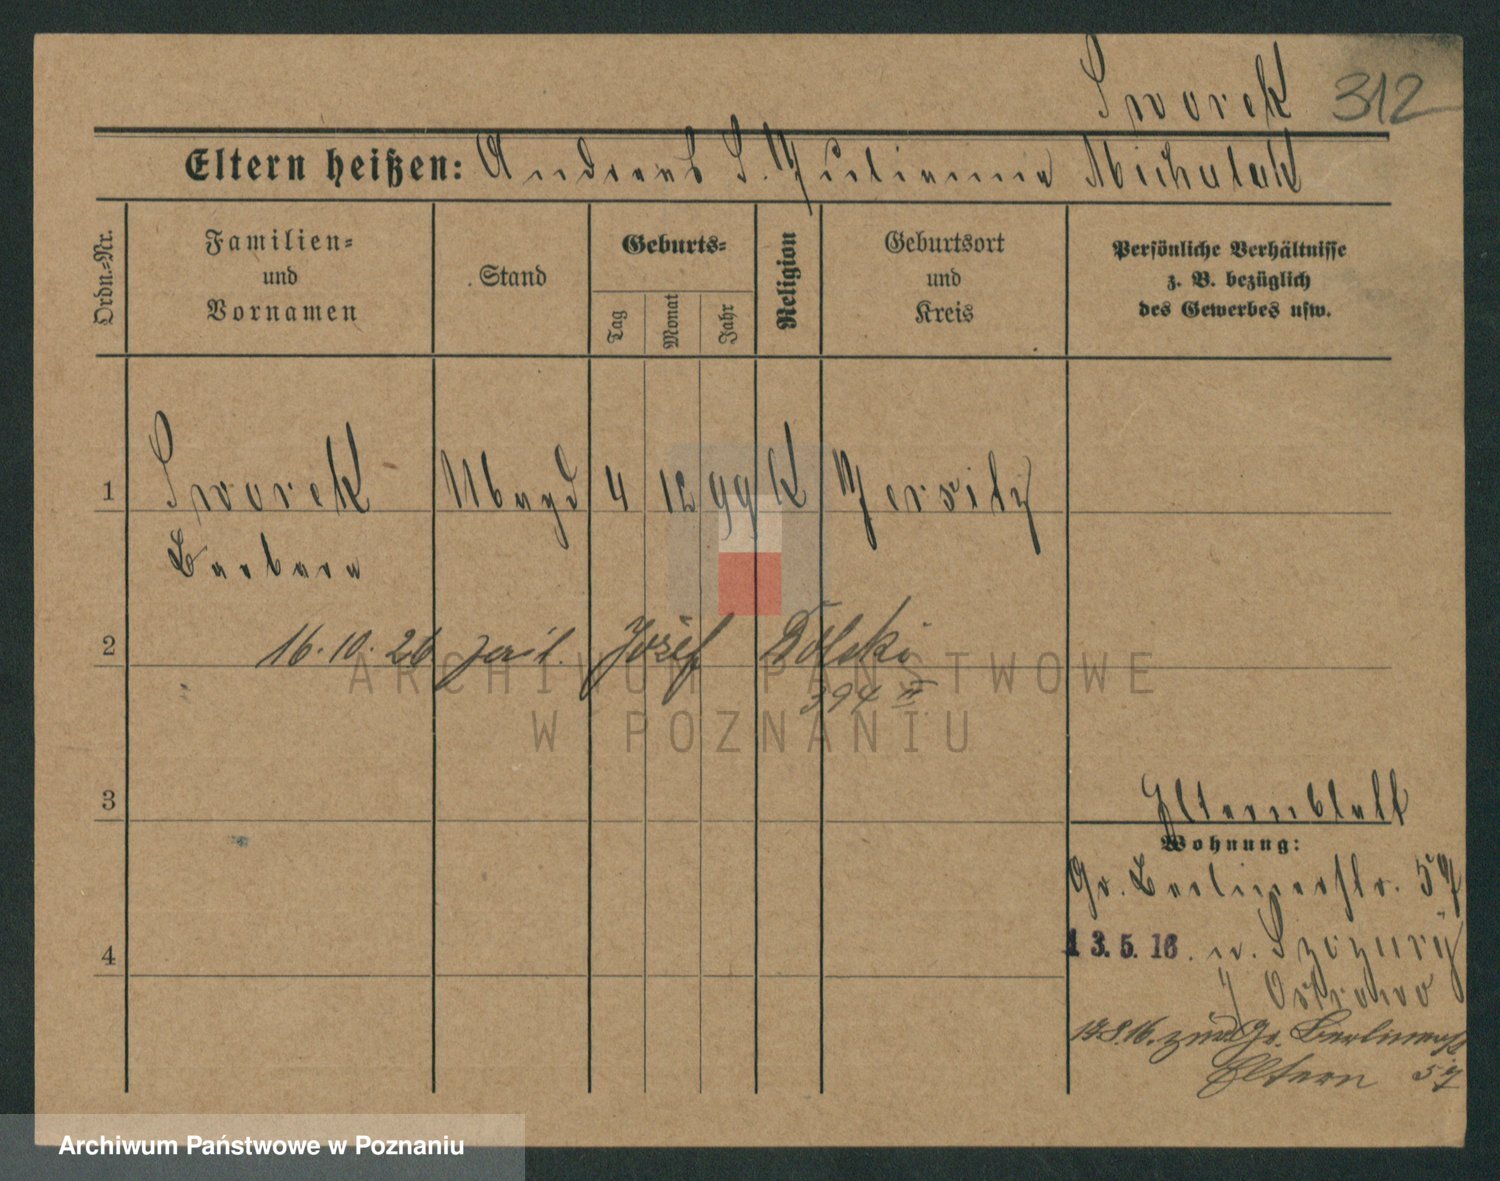 Sworek 312
Eltern heißen: Andreas S. Julianna Michalak
Ordn.=Nr.
Familien=
und
Vornamen
Stand
Geburts=
Tag
Monat
Jahr
Religion
Geburtsort
und
Kreis
Persönliche Verhältnisse
z. B. bezüglich
des Gewerbes usw.
1 Sworek Magd 4 12 99 K Jersitz
Barbara
2 16.10.26 Józef Dolski
394 II
ARCHIWUM PAŃSTWOWE
W POZNANIU
3
Elternblatt
Wohnung:
Gr. Berlinerstr. 57
4 13.5.16. n.
Ostrowo
zur Gr. Berlinerst
Eltern 57
Archiwum Państwowe w Poznaniu